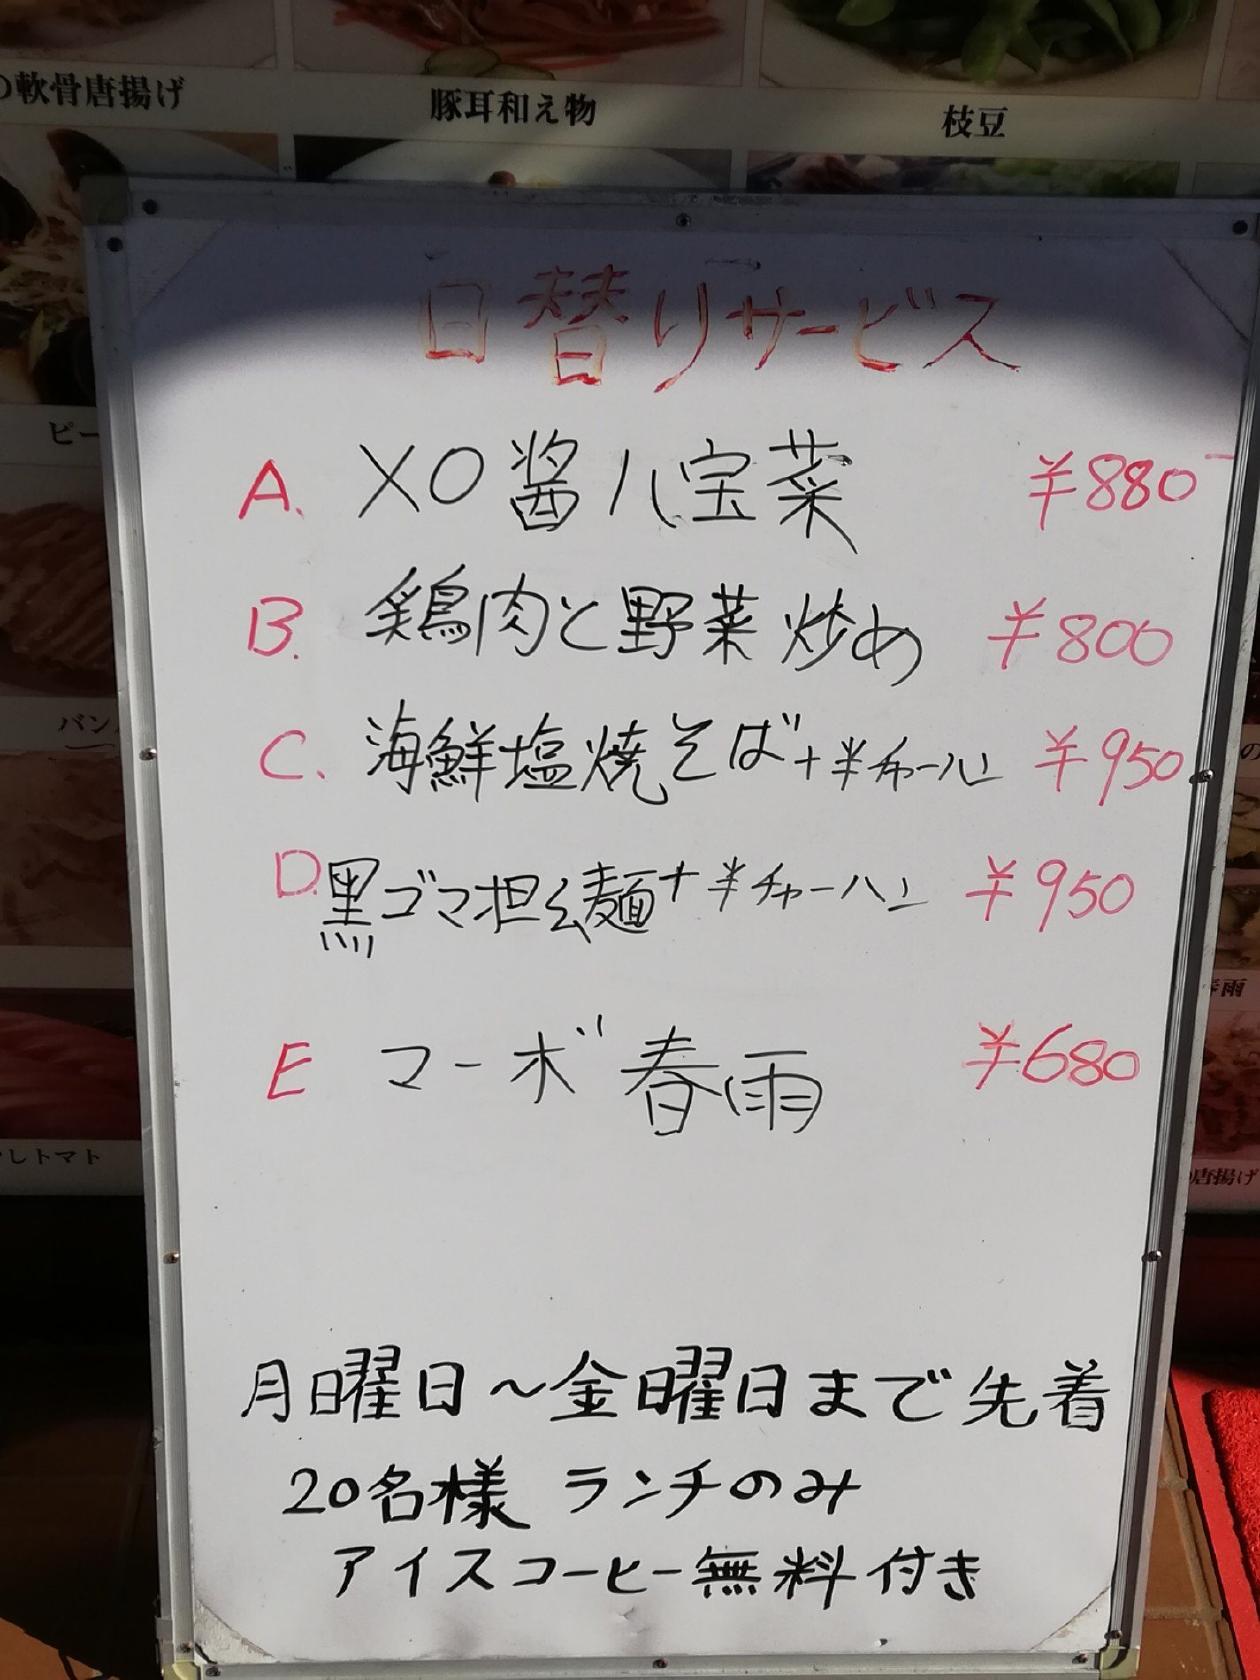 の軟骨唐揚げ
豚耳和え物
枝豆
日替りサービス
A. XO醤八宝菜 ¥880
B. 鶏肉と野菜炒め ¥800
C. 海鮮塩焼そば+半チャーハン ¥950
D. 黒ゴマ担々麺+半チャーハン ¥950
E マーボ春雨 ¥680
月曜日~金曜日まで先着
20名様 ランチのみ
アイスコーヒー無料付き
ピー
バン
しトマト
春雨
唐揚げ